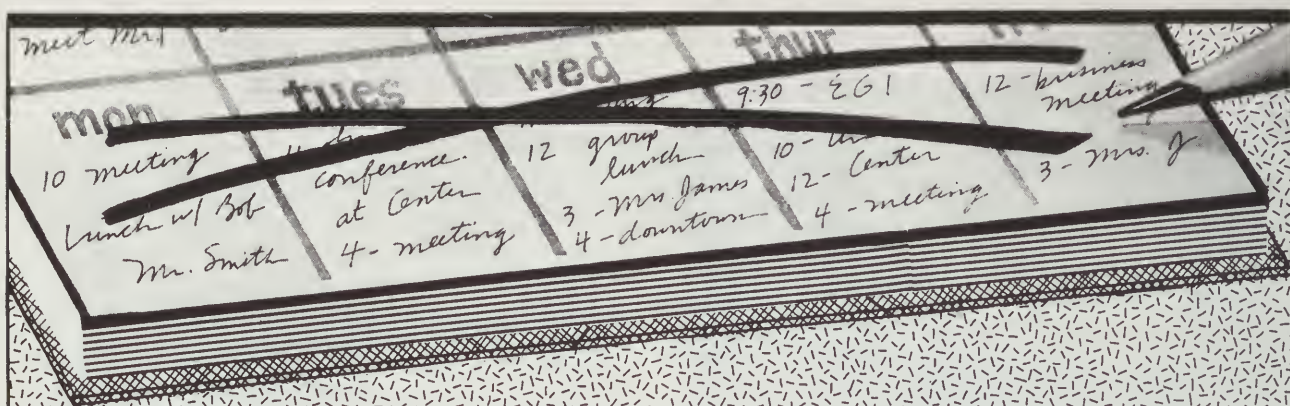 meet Mr.
mon
10 meeting
Lunch w/ Bob
Mr. Smith
tues
conference.
at Center
4 - meeting
wed
12 group
lunch
3 - Mrs James
4 - downtown
thur
9:30 - EGI
10 -
12 - Center
4 - meeting
12 - business
meeting
3 - Mrs. J.